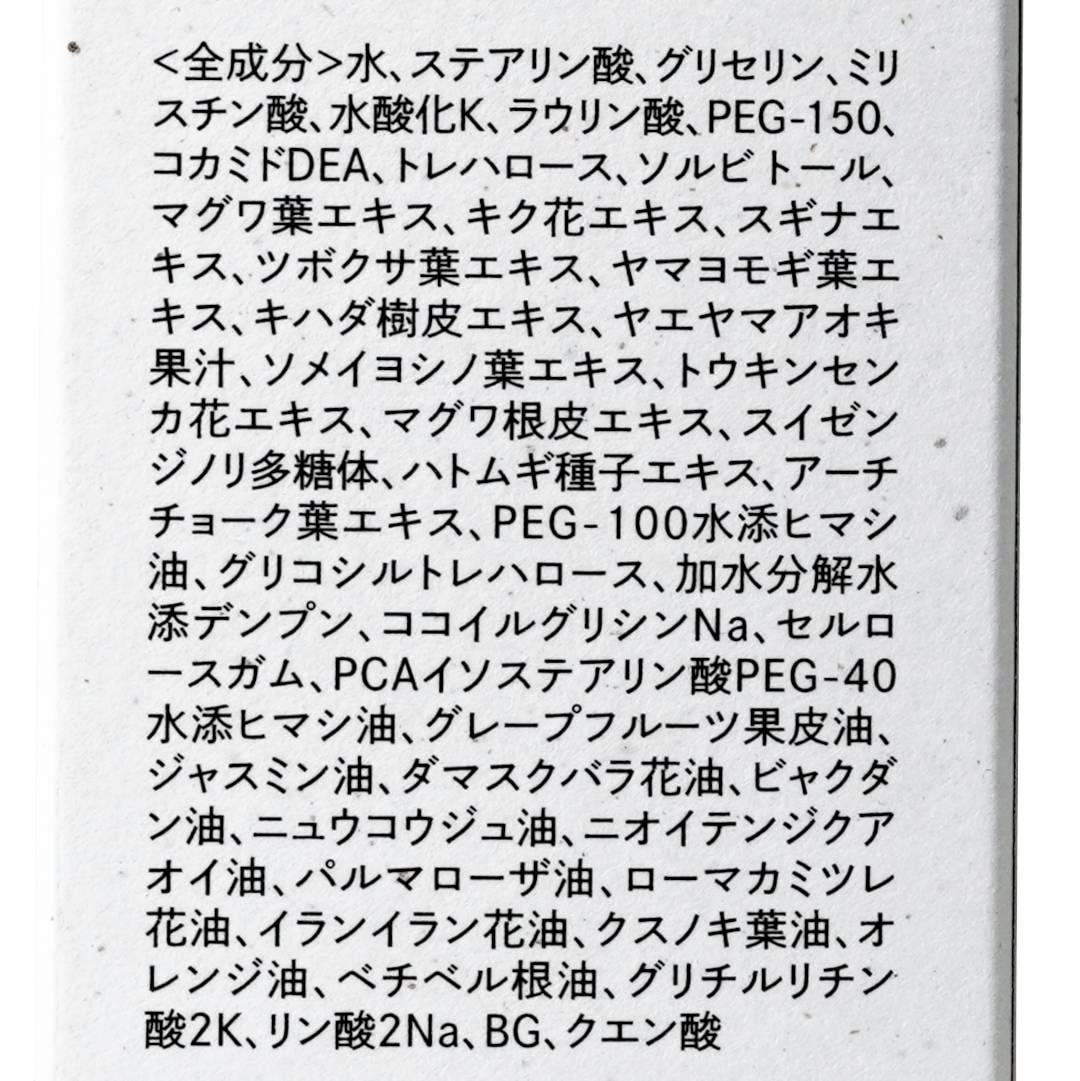 <全成分>水、ステアリン酸、グリセリン、ミリ
スチン酸、水酸化K、ラウリン酸、PEG-150、
コカミドDEA、トレハロース、ソルビトール、
マグワ葉エキス、キク花エキス、スギナエ
キス、ツボクサ葉エキス、ヤマヨモギ葉エ
キス、キハダ樹皮エキス、ヤエヤマアオキ
果汁、ソメイヨシノ葉エキス、トウキンセン
カ花エキス、マグワ根皮エキス、スイゼン
ジノリ多糖体、ハトムギ種子エキス、アーチ
チョーク葉エキス、PEG-100水添ヒマシ
油、グリコシルトレハロース、加水分解水
添デンプン、ココイルグリシンNa、セルロ
ースガム、PCAイソステアリン酸PEG-40
水添ヒマシ油、グレープフルーツ果皮油、
ジャスミン油、ダマスクバラ花油、ビャクダ
ン油、ニュウコウジュ油、ニオイテンジクア
オイ油、パルマローザ油、ローマカミツレ
花油、イランイラン花油、クスノキ葉油、オ
レンジ油、ベチベル根油、グリチルリチン
酸2K、リン酸2Na、BG、クエン酸